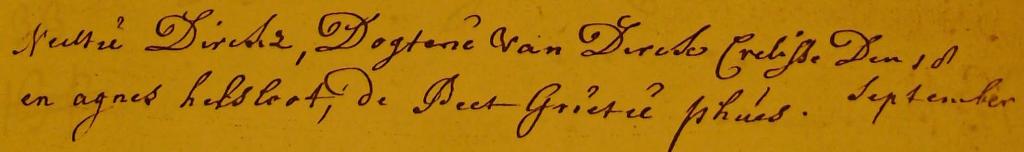 Neeltie Dircks, Dogterie van Dirck Crelisse Den 18
en agnes helsloot, de Peet Grietie phües. September